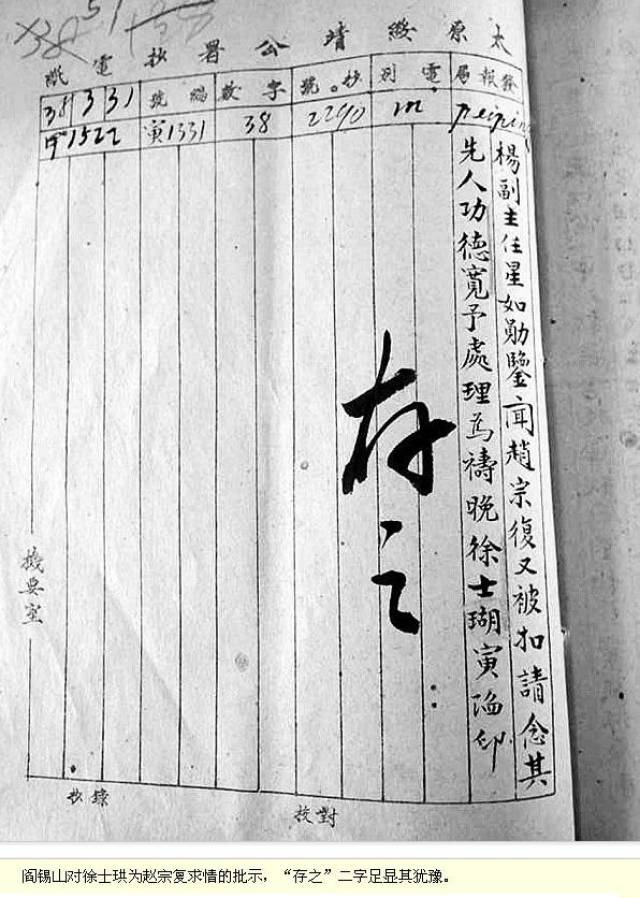 太原綏靖公署抄電紙
發報局 電別 抄號 字數 編號 38 3 31
peiping m 2290 38 寅1331 1522
楊副主任星如勛鑒聞趙宗復又被扣請念其
先人功德寬予處理為禱晚徐士瑚寅陷印
存之
機要室
校對
抄錄
阎锡山对徐士珙为赵宗复求情的批示，“存之”二字足显其犹豫。